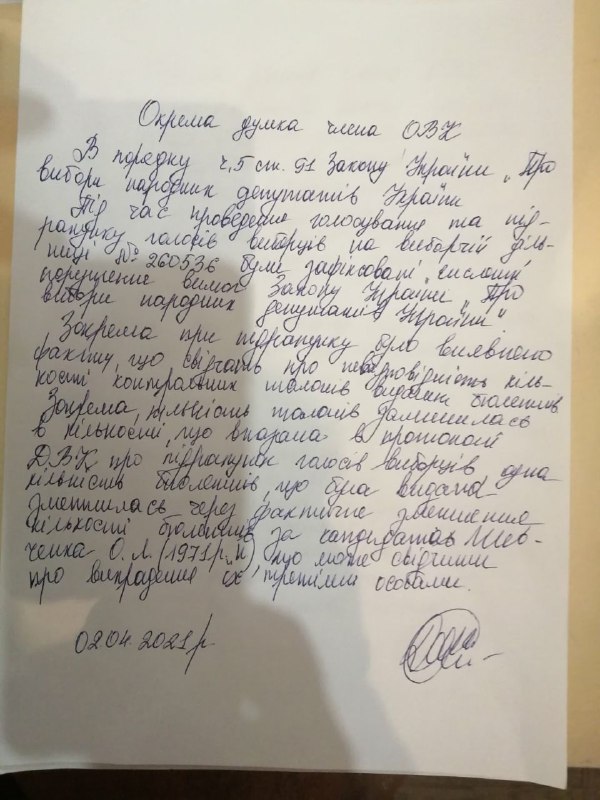 Окрема думка члена ОВК
В порядку ч.5 ст. 91 Закону України „Про
вибори народних депутатів України
Під час проведення голосування та під-
рахунку голосів виборців на виборчій діль-
ниці №260536 були зафіксовані числені
порушення вимог Закону України „Про
вибори народних депутатів України"
Зокрема при підрахунку було виявлено
факти, що свідчать про невідповідність кіль-
кості контрольних талонів виданим бюлетеням
Зокрема, кількість талонів залишилась
в кількості, що вказана в протоколі
ДВК про підрахунок голосів виборців, одна
кількість бюлетенів, що була видана
зменшилась через фактичне зменшення
кількості бюлетенів за кандидатів Шев-
ченка О.Л. (1971 р.н) що може свідчити
про викрадення їх третіми особами.
02 04 2021р